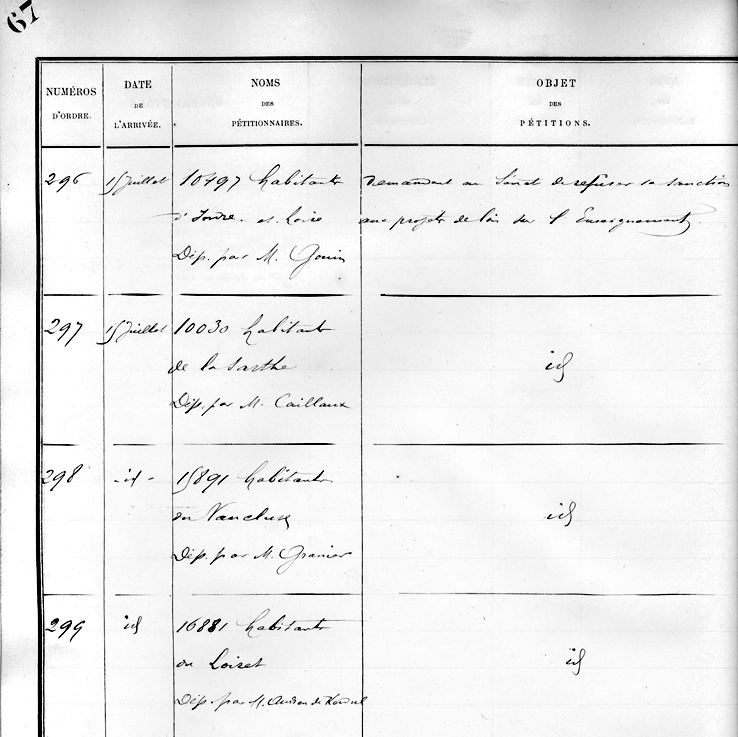 67
NUMÉROS D'ORDRE.
DATE DE L'ARRIVÉE.
NOMS DES PÉTITIONNAIRES.
OBJET DES PÉTITIONS.
296 15 Juillet 10497 habitants demandent au Sénat de refuser sa sanction
d'Indre. et. Loire aux projets de lois sur l'Enseignement.
Dép. par M. Gouin
297 15 Juillet 10030 habitants
de la Sarthe id
Dép. par M. Caillaux
298 - id - 15891 habitants
du Vaucluse id
Dép. par M. Granier
299 id 16881 habitants
du Loiret id
Dép. par M. de